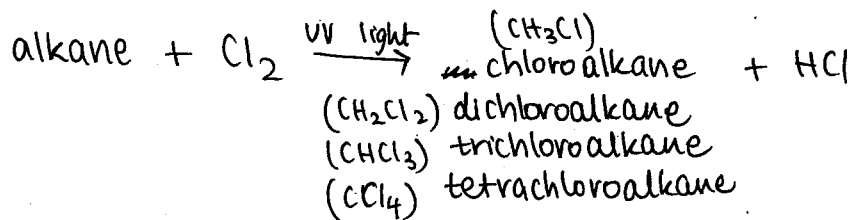 UV light (CH₃Cl)
alkane + Cl₂ → chloroalkane + HCl
(CH₂Cl₂) dichloroalkane
(CHCl₃) trichloroalkane
(CCl₄) tetrachloroalkane